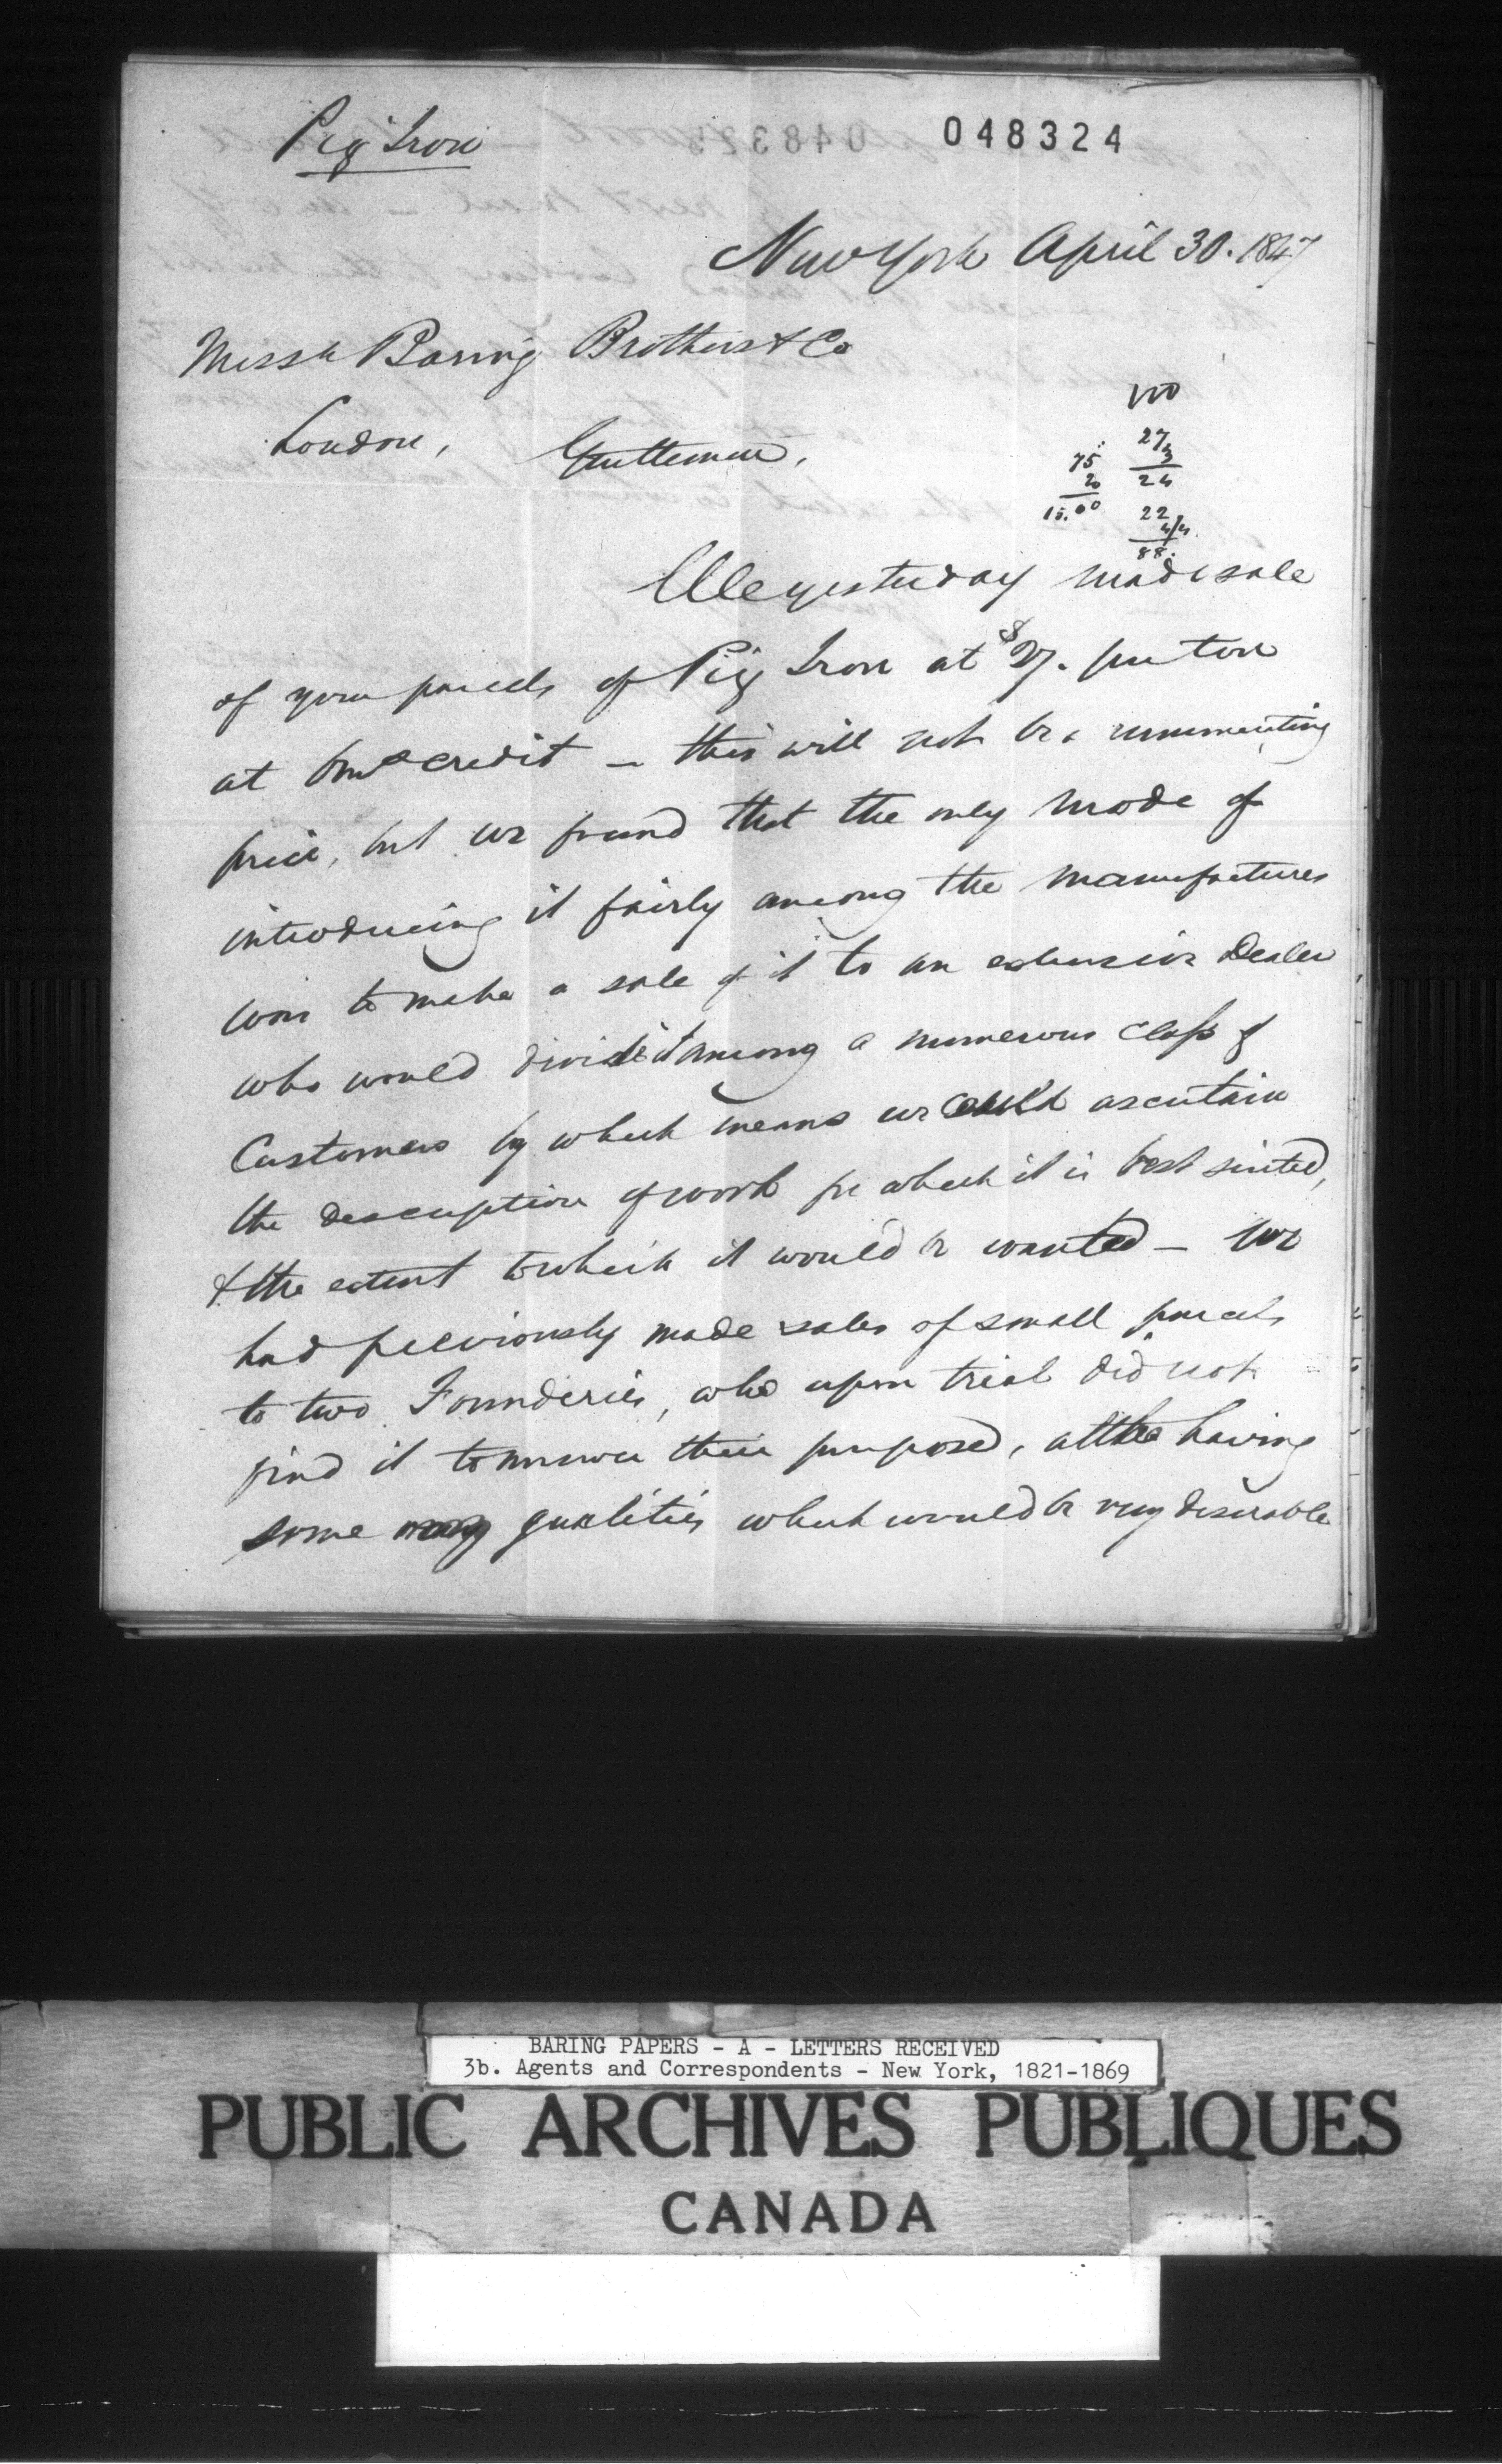 Pig Iron
048324
New York April 30. 1847
Messrs Baring Brothers & Co
London, Gentlemen,
27
3
24
75
20
15.00
22
4/4
88.
We yesterday made sale
of your parcels of Pig Iron at $27. per ton
at 6mos credit – this will not be a remunerating
price, but we found that the only mode of
introducing it fairly among the manufacturers
was to make a sale of it to an extensive Dealer
who would divide it among a numerous class of
Customers by which means we could ascertain
the description of work for which it is best suited,
& the extent to which it would be wanted – We
had previously made sales of small parcels
to two Founderies, who upon trial did not
find it to answer their purposes, altho having
some qualities which would be very desirable
BARING PAPERS - A - LETTERS RECEIVED
3b. Agents and Correspondents - New York, 1821-1869
PUBLIC ARCHIVES PUBLIQUES
CANADA